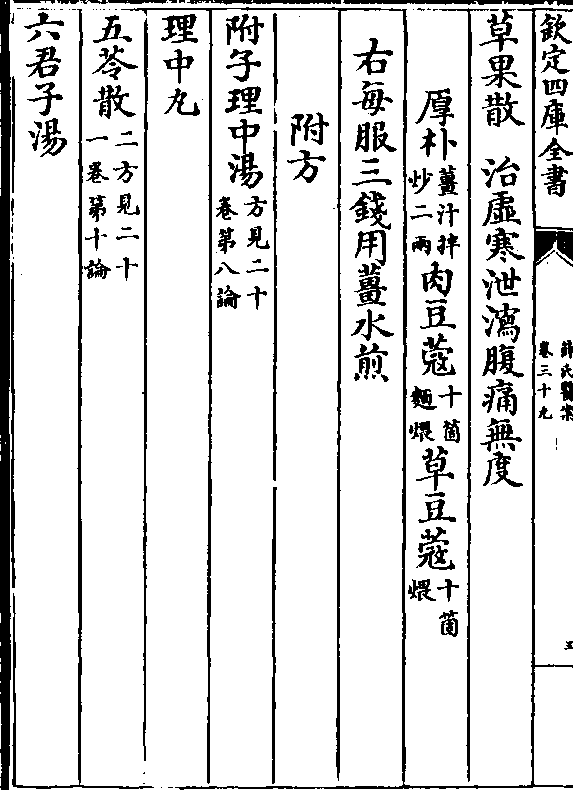 欽定四庫全書
薛氏醫案
卷三十九
五
草果散　治虛寒泄瀉腹痛無度
厚朴薑汁拌炒二兩肉豆蔻十箇麵煨草豆蔻十箇煨
右每服三錢用薑水煎
附方
附子理中湯方見二十卷第八論
理中丸
五苓散二方見二十一卷第十論
六君子湯